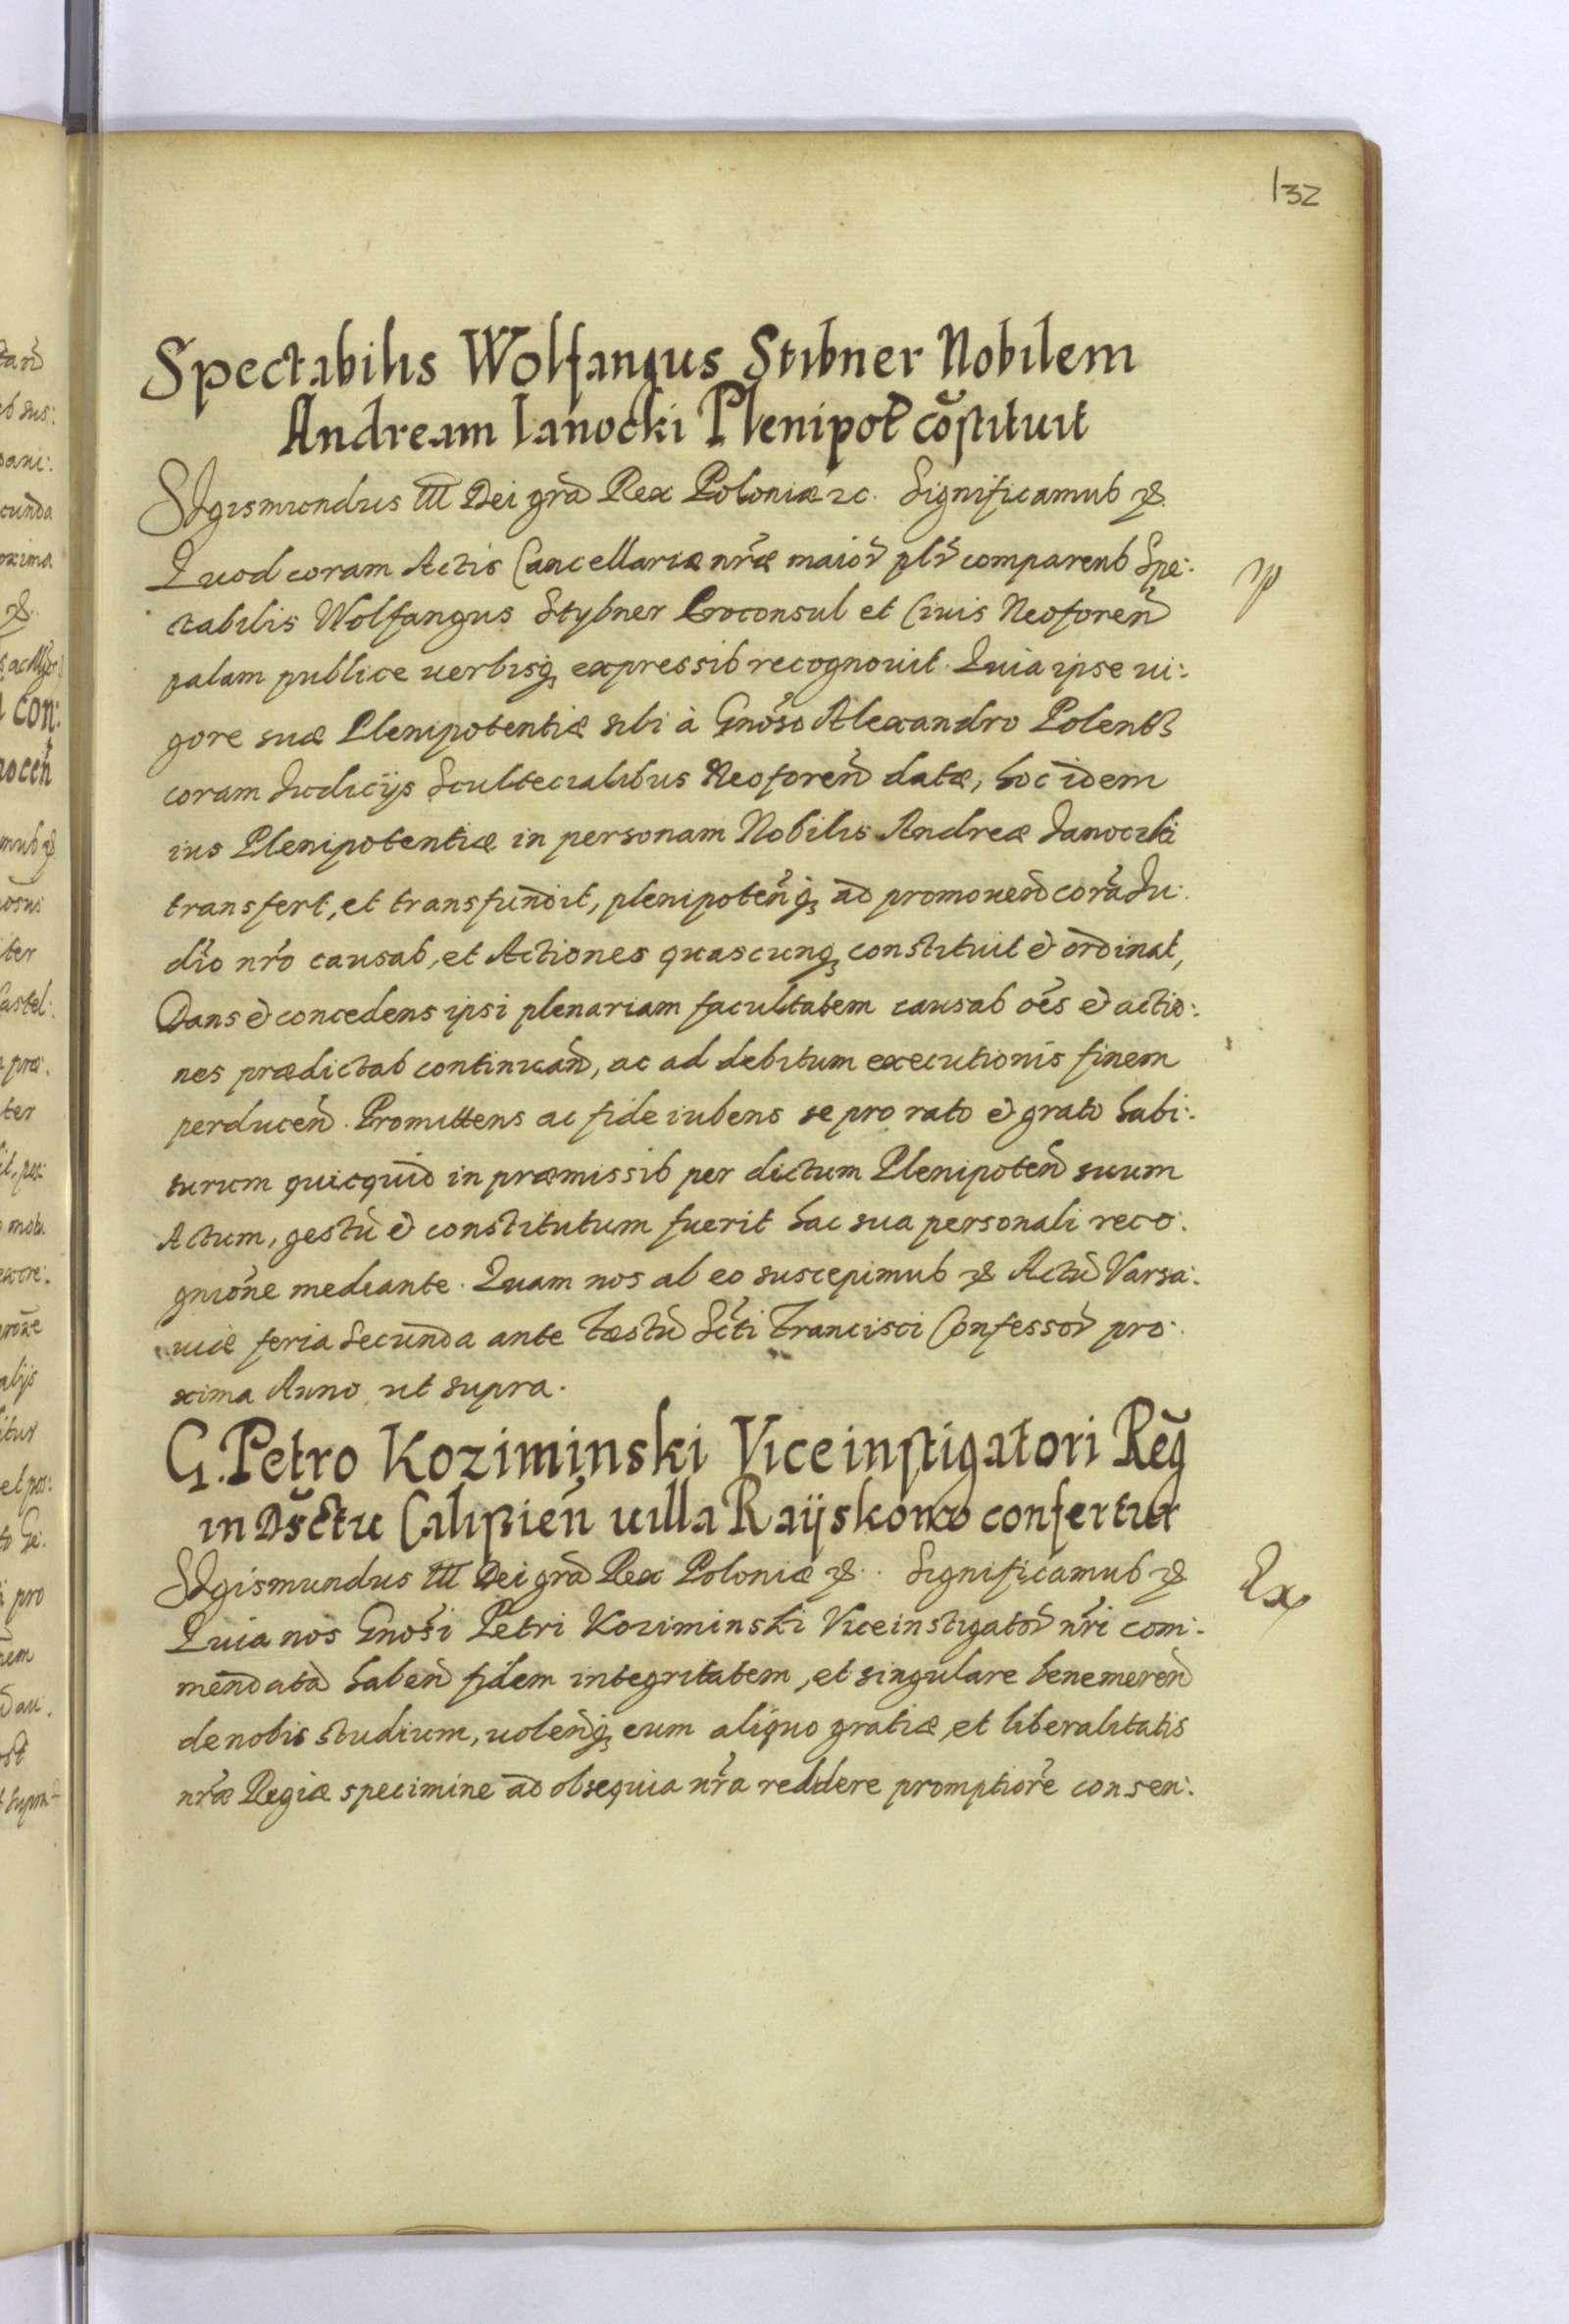 132
Spectabilis Wolfangus Stibner Nobilem
Andream Ianocki Plenipot̃ cõstituit
SIgismundus III Dei grã Rex Poloniæ ꝛc. Significamus ꝛc.
Quod coram Actis Cancellariæ nr̃æ maior̃ plr̃ comparens Spe:
ctabilis Wolfangus Stybner Proconsul et Ciuis Neoforeñ
palam publice uerbisq₃ expressis recognouit. Quia ipse ui:
gore suæ Plenipotentiæ sibi à Gnõso Alexandro Polents
coram Iudicijs Scultecialibus Neoforeñ datæ, hoc idem
ius Plenipotentiæ in personam Nobilis Andreæ Ianoczki
transfert, et transfundit, plenipoteñq₃ ad promoueñd corã Iu:
dĩo nr̃o causas, et Actiones quascunq₃ constituit & ordinat,
Dans & concedens ipsi plenariam facultatem causas oẽs & actio:
nes prædictas continuañd, ac ad debitum executionis finem
perduceñd. Promittens ac fide iubens se pro rato & grato habi:
turum quicquid in præmissis per dictum Plenipoteñ suum
Actum, gestũ & constitutum fuerit hac sua personali reco:
gniõne mediante. Quam nos ab eo suscepimus ꝛc Actũ Varsa:
uiæ feria Secunda ante Fæstũ Sc̃ti Francisci Confessor̃ pro:
xima Anno ut supra.
G. Petro Koziminski Viceinstigatori Reg̃
in Dsc̃tu Calißień uilla Raijskowo confertur
SIgismundus III Dei grã Rex Poloniæ ꝛc. Significamus ꝛc
Quia nos Gnõsi Petri Koziminski Viceinstigator̃ nr̃i com:
mendatã habeñ fidem integritatem, et singulare benemereñ
de nobis studium, uoleñq₃ eum aliquo gratiæ et liberalitatis
nr̃æ Regiæ specimine ad obsequia nr̃a reddere promptiorẽ consen:
Ex